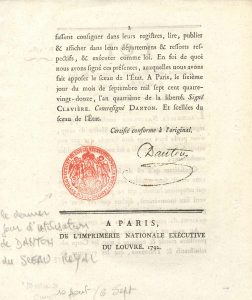 2
fussent consigner dans leurs registres, lire, publier
& afficher dans leurs départemens & ressorts res-
pectifs, & exécuter comme loi. En foi de quoi
nous avons signé ces présentes, auxquelles nous avons
fait apposer le sceau de l'État. A Paris, le sixième
jour du mois de septembre mil sept cent quatre-
vingt-douze, l'an quatrième de la liberté. Signé
CLAVIÈRE. Contresigné DANTON. Et scellées du
sceau de l'État.
Certifié conforme à l'original.
Danton
le dernier
jour d'utilisation
de DANTON
du SCEAU-ROYAL
A PARIS,
DE L'IMPRIMERIE NATIONALE EXÉCUTIVE
DU LOUVRE. 1792.
10 août / 6 Sept